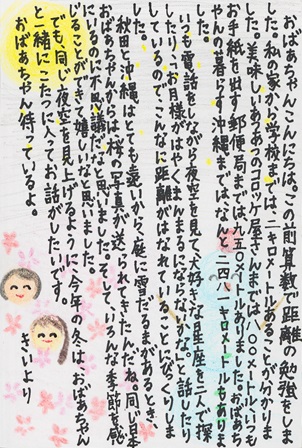 おばあちゃんこんにちは。この前算数で距離の勉強をしま
した。私の家から学校までは、二キロメートルあることが分かりま
した。美味しいあのコロッケ屋さんまでは一〇〇メートル、いつも
お手紙を出す郵便局までは、九五〇メートルありました。おばあち
ゃんの暮らす沖縄まではなんと、二四八一キロメートルもありま
した。
いつも電話をしながら夜空を見て、大好きな星座を二人で探
したり、「お月様がはやくまんまるにならないかな。」と話したり
しているので、こんなに距離がはなれていることにびっくりしま
した。
秋田と沖縄はとても遠いから、庭に雪だるまがあるとき、
おばあちゃんからは、桜の写真が送られてきたんだね。同じ日本
にいるのに不思議だなと思いました。そして、いろんな季節を感
じることができて嬉しいなと思いました。
でも、同じ夜空を見上げるように、今年の冬は、おばあちゃん
と一緒にこたつに入ってお話がしたいです。
おばあちゃん待っているよ。
きいより